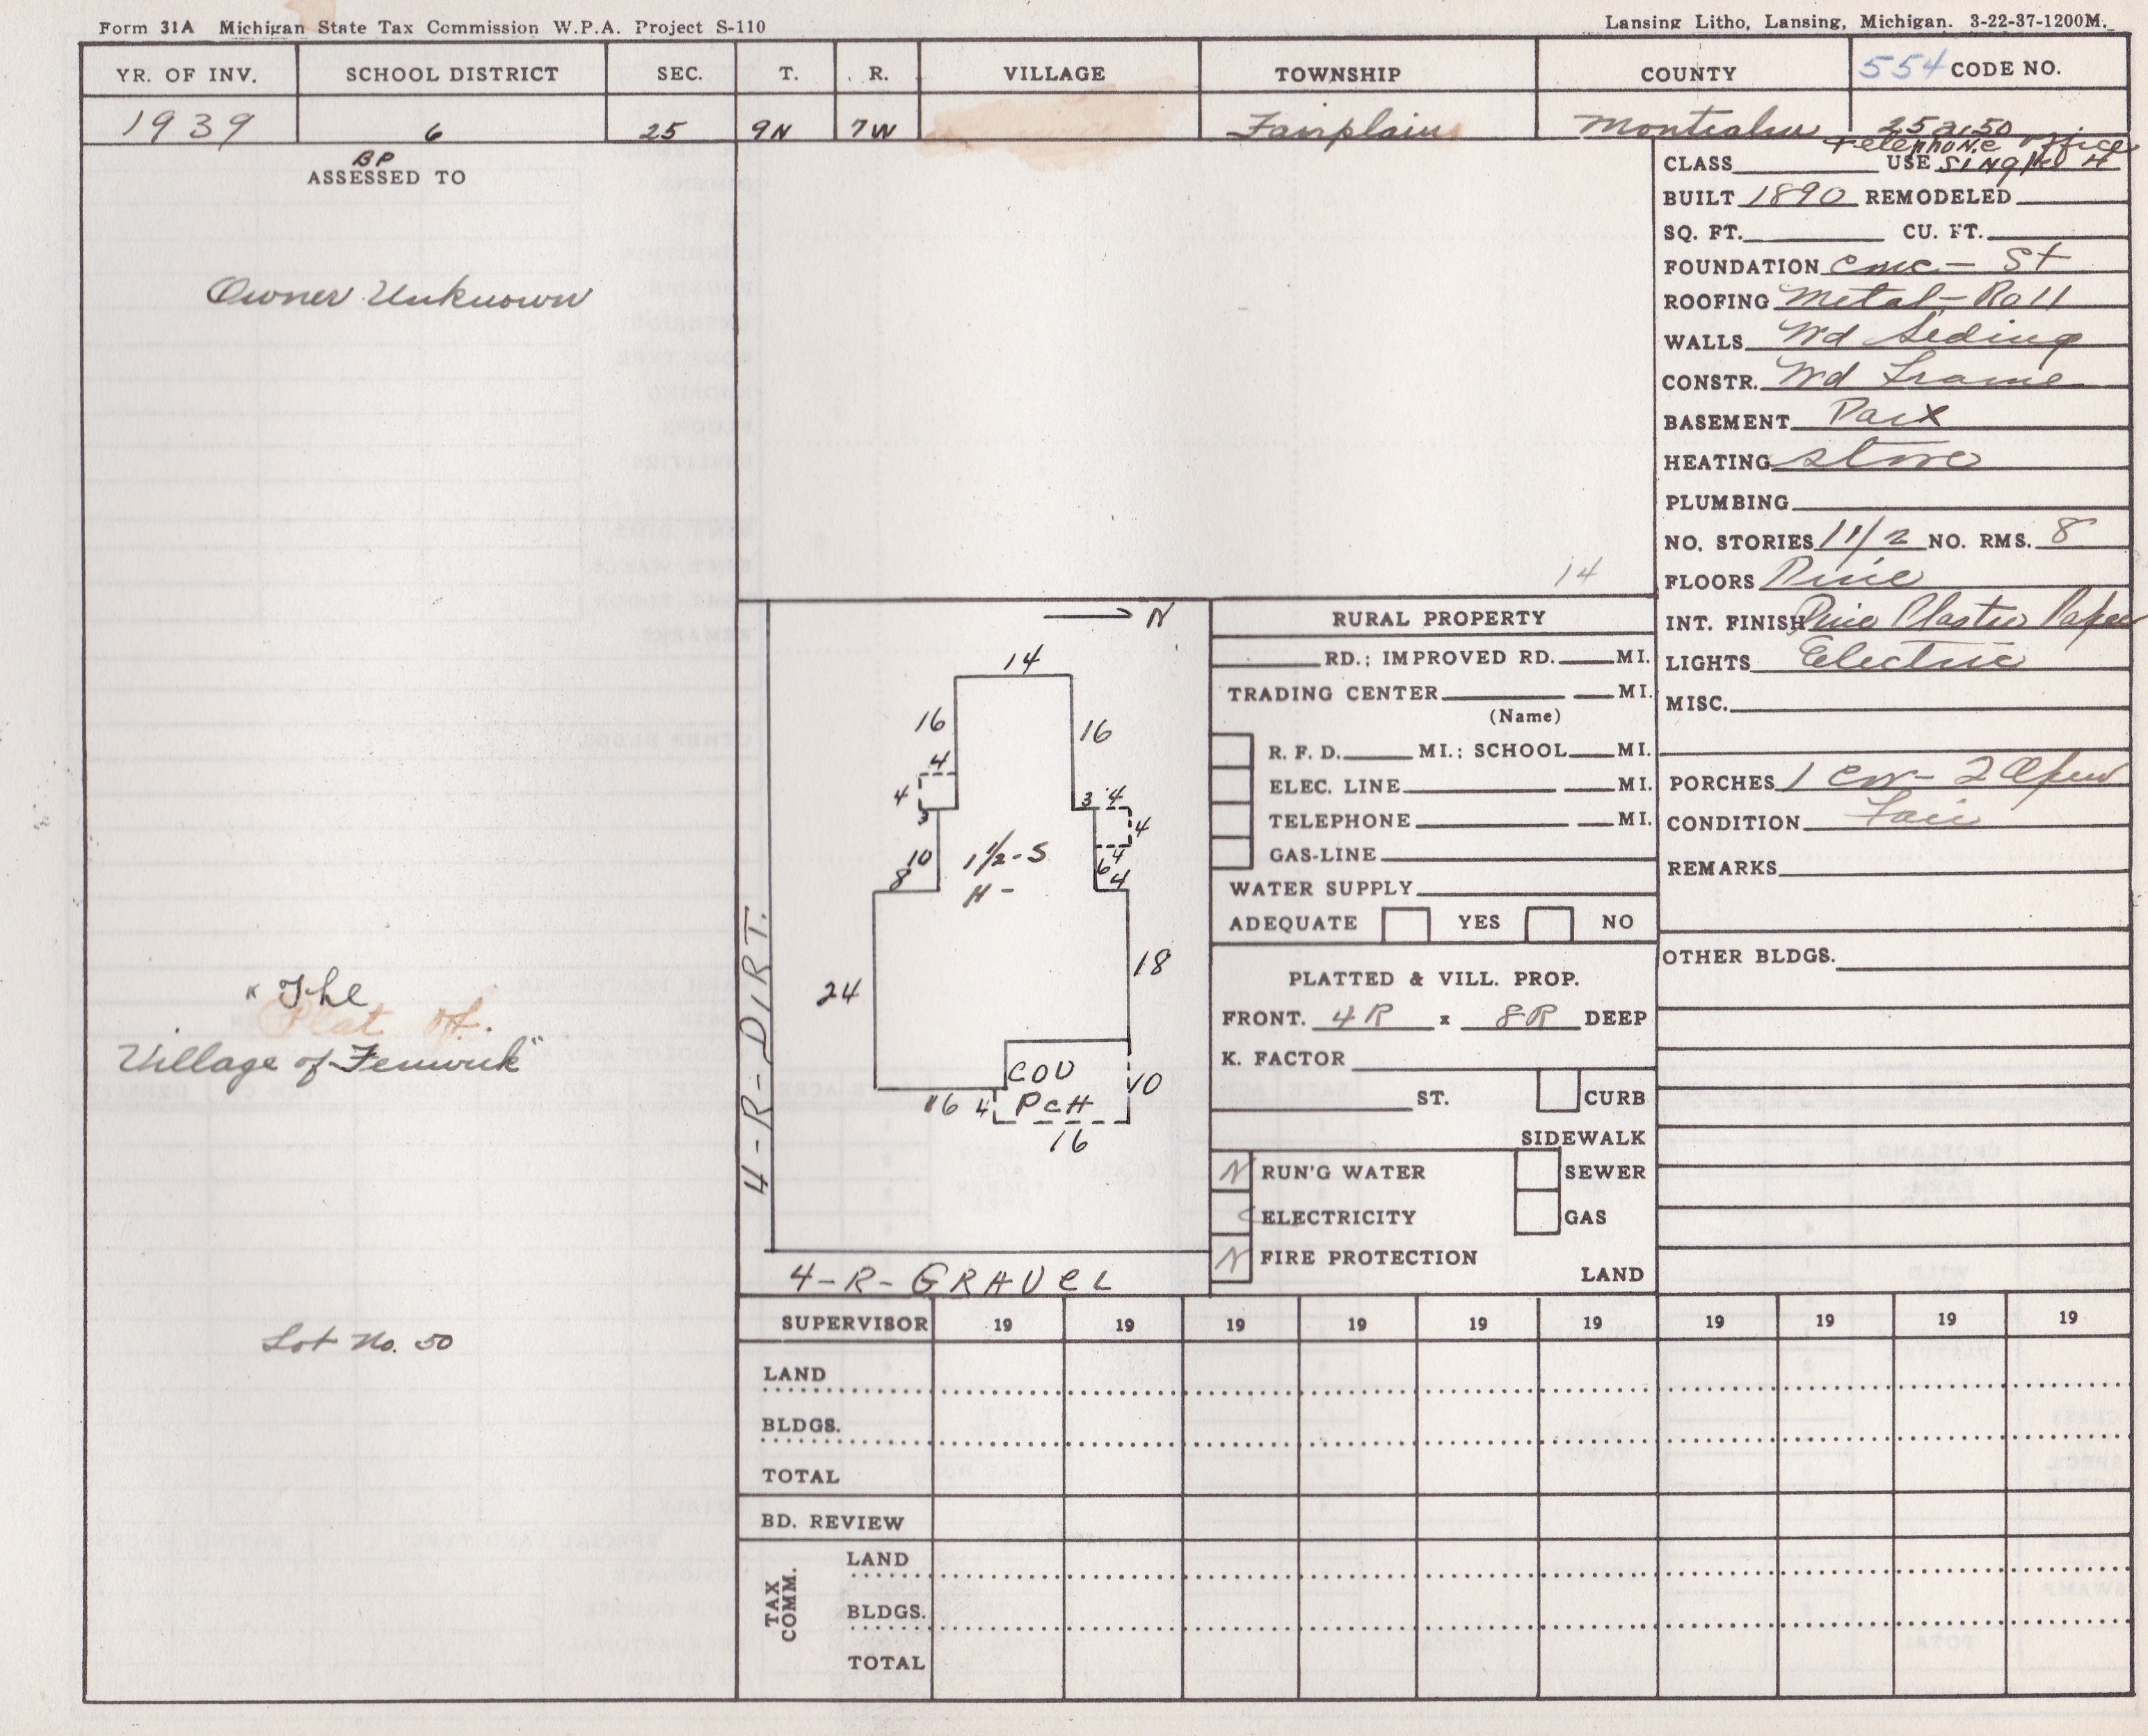 Form 31A Michigan State Tax Commission W.P.A. Project S-110
Lansing Litho, Lansing, Michigan. 3-22-37-1200M.
YR. OF INV. SCHOOL DISTRICT SEC. T. R. VILLAGE TOWNSHIP COUNTY 554 CODE NO.
1939 6 25 9N 7W Fairplains Montcalm 25 21 50
BP
ASSESSED TO
Owner Unknown
"The
Plat of
Village of Fenwick"
Lot No. 50
Telephone office
CLASS USE Single H
BUILT 1890 REMODELED
SQ. FT. CU. FT.
FOUNDATION Cmc - St
ROOFING Metal - Roll
WALLS Wd Siding
CONSTR. Wd Frame
BASEMENT Part
HEATING Stove
PLUMBING
NO. STORIES 1 1/2 NO. RMS. 8
FLOORS Pine
INT. FINISH Pine Plaster Paper
LIGHTS Electric
MISC.
PORCHES 1 Cov - 2 Open
CONDITION Fair
REMARKS
OTHER BLDGS.
14
N
14
16
16
4
4
3
3 4
4
4
10
8
1 1/2-S
H -
6
4
24
18
COV
PCH
10
16 4
16
4-R-DIRT.
4-R-GRAVEL
RURAL PROPERTY
RD.; IMPROVED RD. MI.
TRADING CENTER MI.
(Name)
R. F. D. MI.; SCHOOL MI.
ELEC. LINE MI.
TELEPHONE MI.
GAS-LINE
WATER SUPPLY
ADEQUATE YES NO
PLATTED & VILL. PROP.
FRONT. 4R x 8R DEEP
K. FACTOR
ST. CURB
SIDEWALK
N RUN'G WATER SEWER
ELECTRICITY GAS
N FIRE PROTECTION
LAND
SUPERVISOR 19 19 19 19 19 19 19 19 19 19
LAND
BLDGS.
TOTAL
BD. REVIEW
TAX COMM.
LAND
BLDGS.
TOTAL